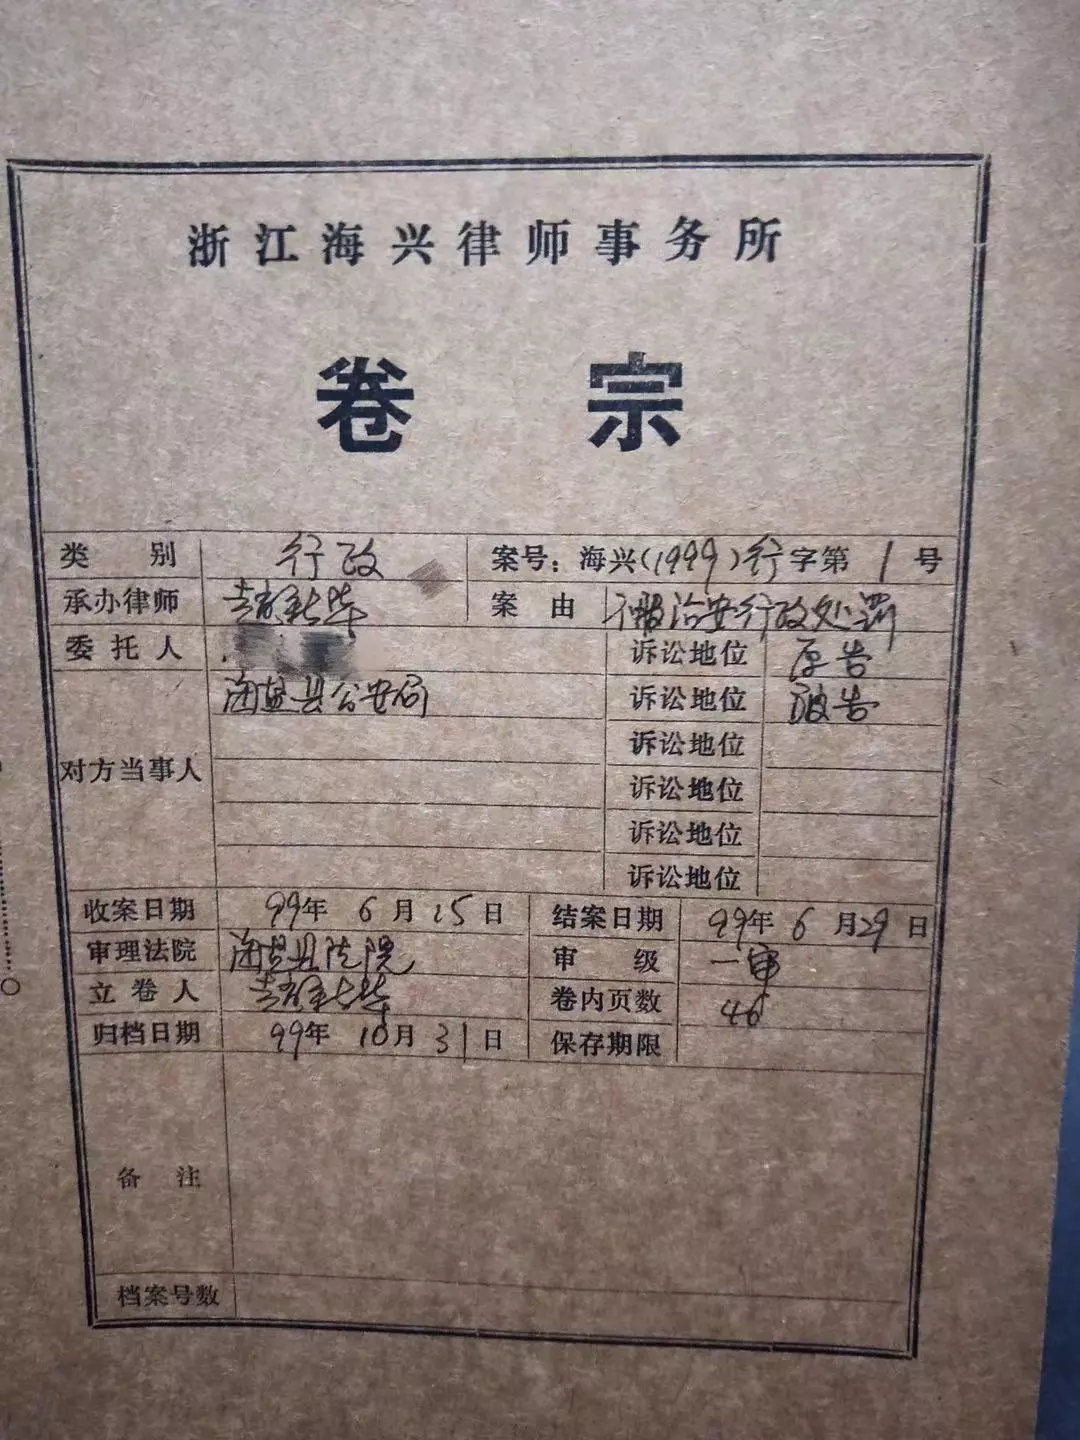 浙江海兴律师事务所
卷宗
类别 行政 案号：海兴(1999)行字第1号
承办律师 案由 不服治安行政处罚
委托人 诉讼地位 原告
对方当事人 海盐县公安局 诉讼地位 被告
诉讼地位
诉讼地位
诉讼地位
诉讼地位
收案日期 99年6月15日 结案日期 99年6月29日
审理法院 海盐县法院 审级 一审
立卷人 卷内页数 46
归档日期 99年10月31日 保存期限
备注
档案号数